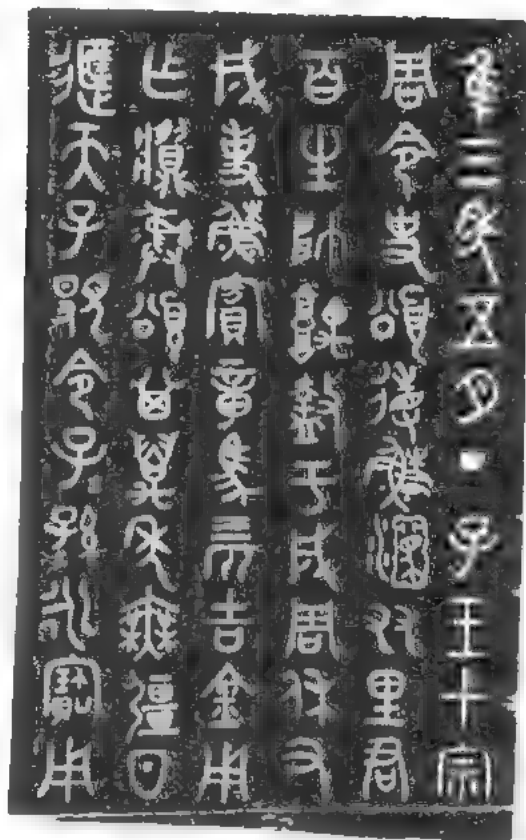 隹三年五月丁子王才宗
周令史頌𢓊穌㵐友里君
百生帥𦣞盩于成周休又
成事穌賓章馬四匹吉金用
乍𩰫彝頌其萬年無彊日
𨒙天子㫫令子＝孫＝永寶用